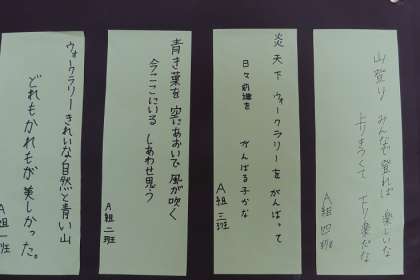 山登り みんなで登れば 楽しいな
より楽だな
A組四班
炎天下 ウォークラリーを がんばって
日々
がんばる子かな
A組三班
青き葉を 空にあおいで 風が吹く
今ここにいる しあわせ思う
A組二班
ウォークラリーきれいな自然と青い山
どれもかれもが美しかった。
A組一班